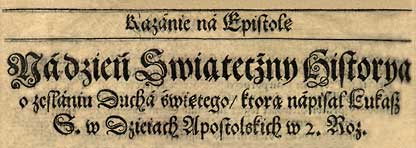 Kazánie ná Epistole
Ná dzień Swiąteczny Historya
o zesłániu Duchá świętego/ ktorą nápisał Łukasz
S. w Dzieiach Apostolskich w 2. Roz.